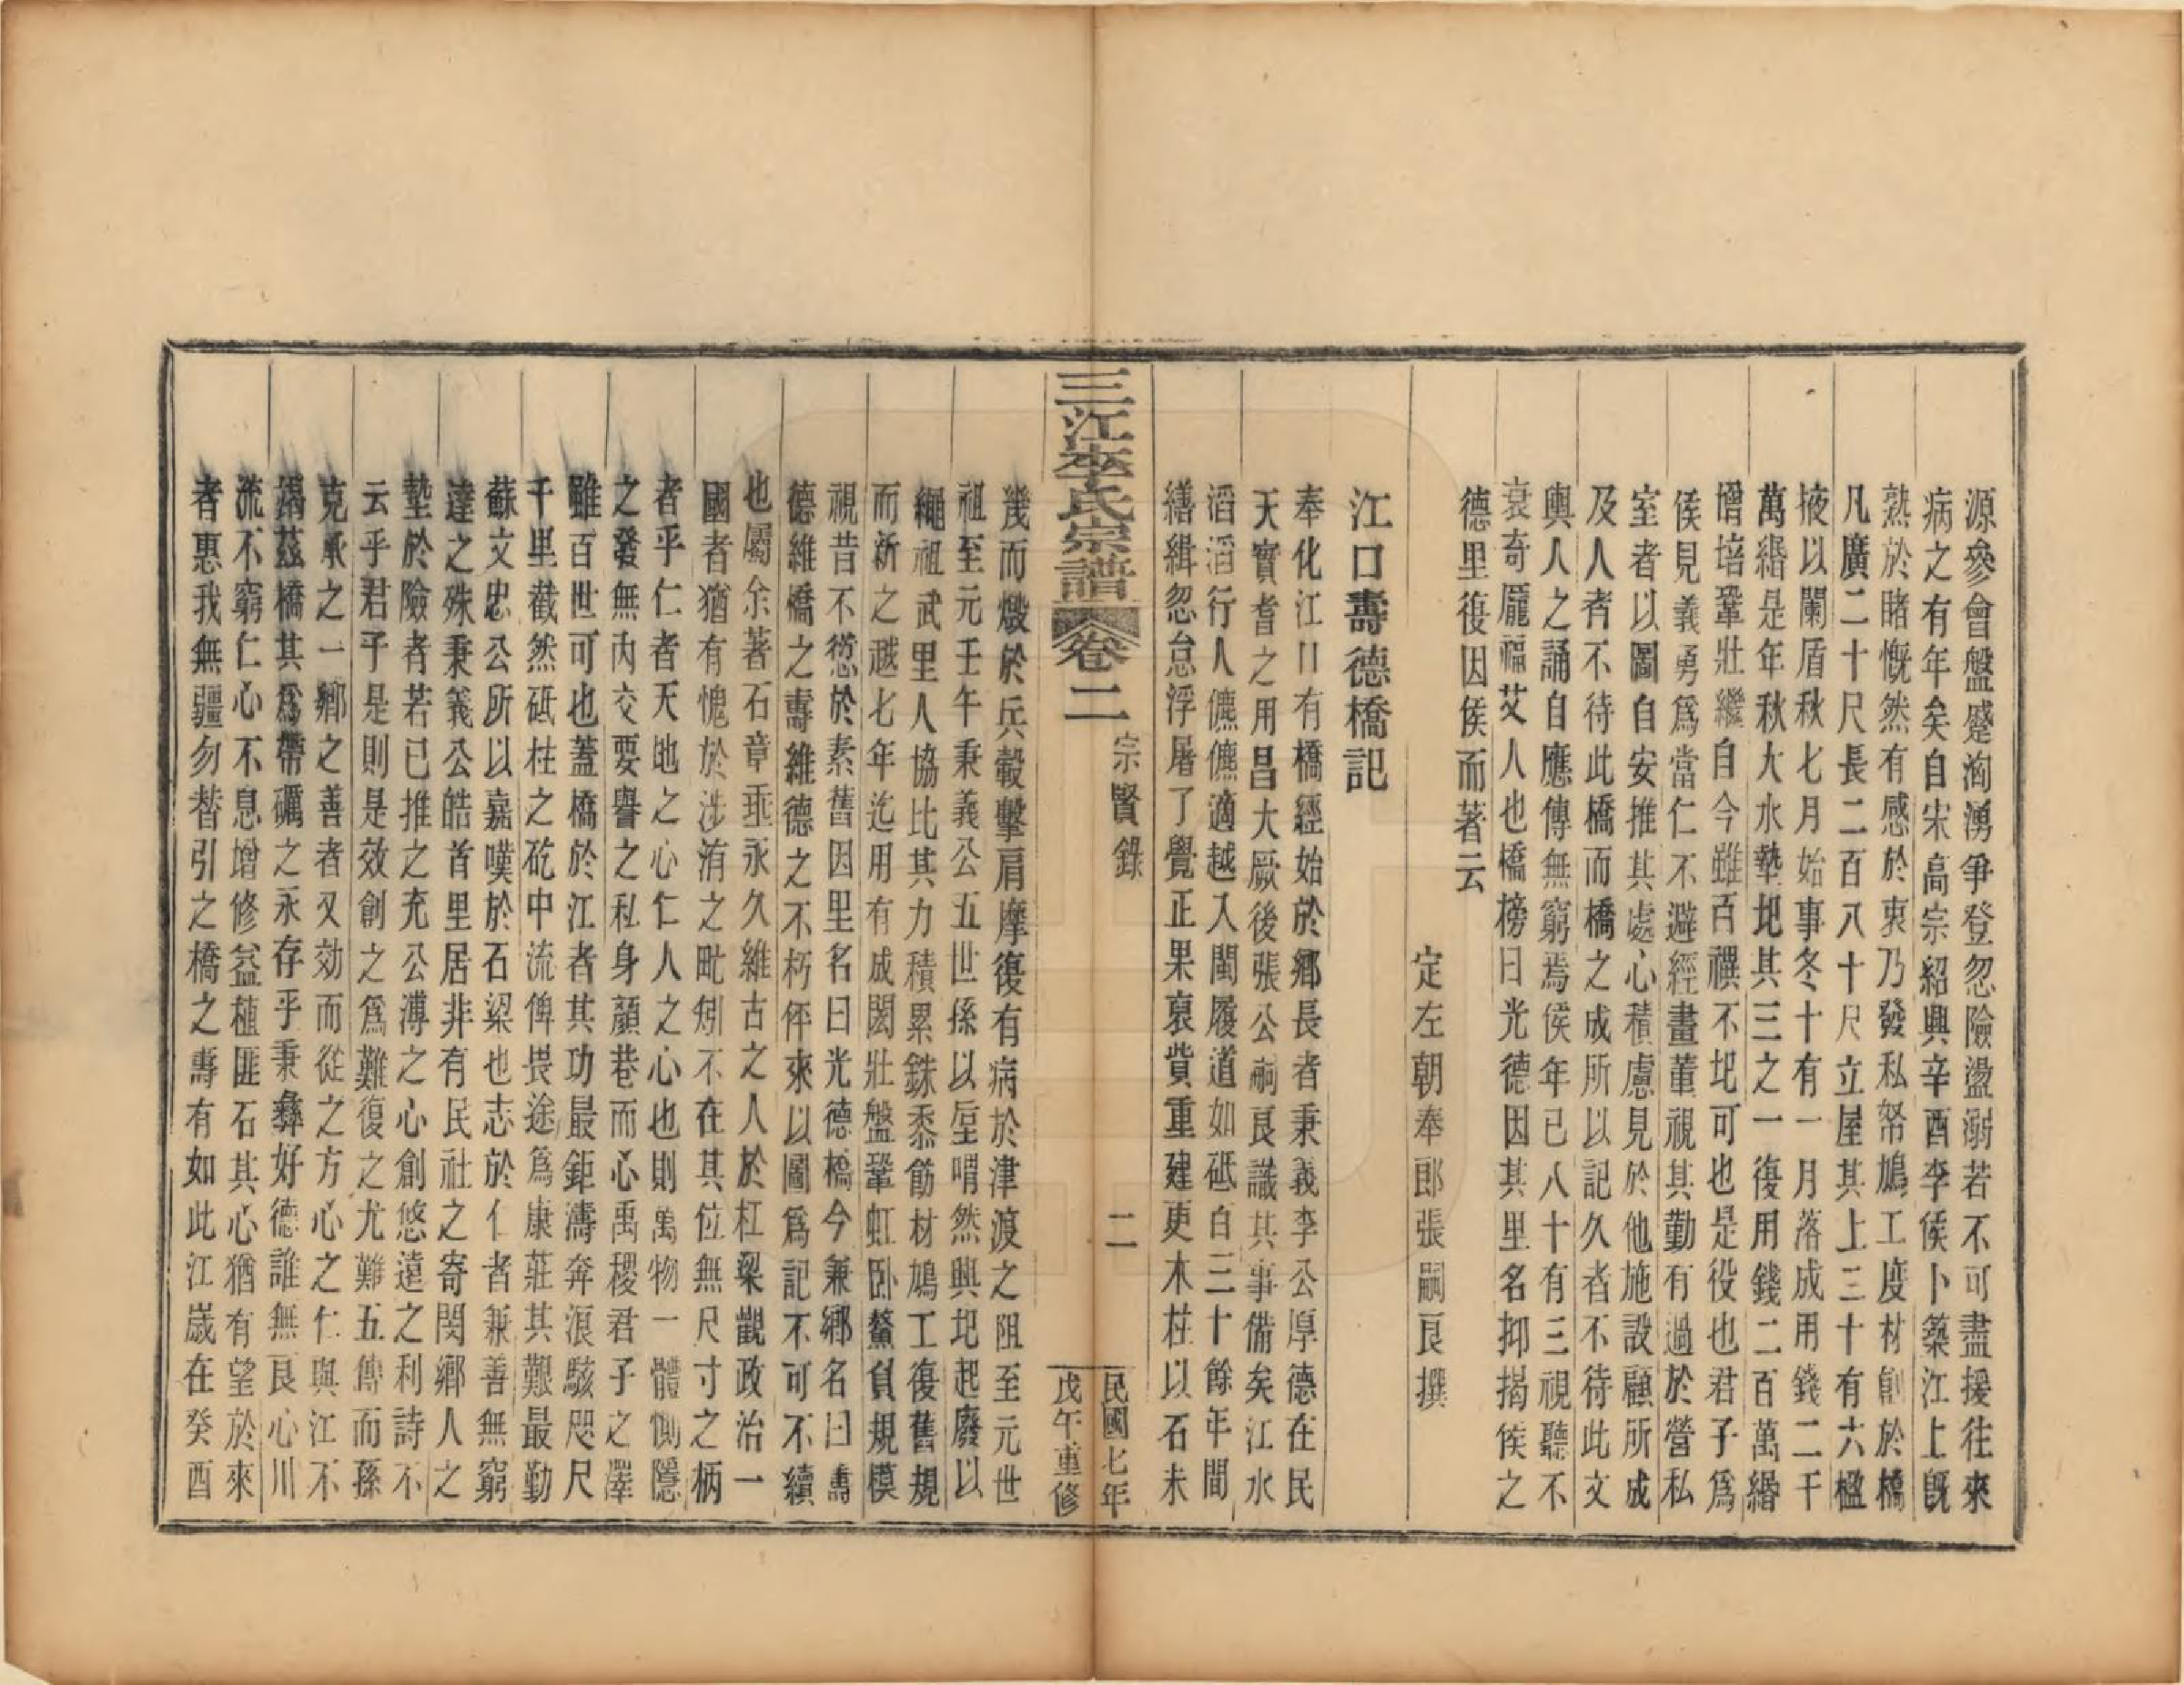 源參會盤盪洶湧爭登忽險盪溺若不可盡援往來
病之有年矣自宋高宗紹興辛酉李侯卜築江上既
熟於睹慨然有感於衷乃發私帑鳩工度材創於橋
凡廣二十尺長二百八十尺立屋其上三十有六楹
掖以闌盾秋七月始事冬十有一月落成用錢二千
萬緡是年秋大水墊圮其三之一復用錢二百萬緡
增培鞏壯繼自今雖百禩不圮可也是役也君子爲
侯見義勇爲當仁不避經畫董視其勤有過於營私
室者以圖自安推其處心積慮見於他施設顧所成
及人者不待此橋而橋之成所以記久者不待此文
輿人之誦自應傳無窮焉侯年已八十有三視聽不
衰奇龐福艾人也橋榜曰光德因其里名抑揭侯之
德里復因侯而著云
定左朝奉郎張嗣良撰
江口壽德橋記
奉化江口有橋經始於鄉長者秉義李公厚德在民
天實耆之用昌大厥後張公嗣良識其事備矣江水
滔滔行人儦儦適越入閩履道如砥白三十餘年間
繕緝忽怠浮屠了覺正果裒貲重建更木柱以石未
三江李氏宗譜 卷二 宗賢錄 二 民國七年戊午重修
幾而燬於兵轂擊肩摩復有病於津渡之阻至元世
祖至元壬午秉義公五世孫以堂喟然興圮起廢以
繩祖武里人協比其力積累銖黍飭材鳩工復舊規
而新之越七年迄用有成閎壯盤鞏虹臥鰲負規模
視昔不愆於素舊因里名曰光德橋今兼鄉名曰壽
德維橋之壽維德之不朽伻來以圖爲記不可不續
也屬余著石章垂永久維古之人於杠梁觀政治一
國者猶有愧於涉洧之毗矧不在其位無尺寸之柄
者乎仁者天地之心仁人之心也則萬物一體惻隱
之發無內交要譽之私身顏巷而心禹稷君子之澤
雖百世可也蓋橋於江者其功最鉅濤奔浪駭咫尺
千里截然砥柱之矻中流俾畏途爲康莊其艱最勤
蘇文忠公所以嘉嘆於石梁也志於仁者兼善無窮
達之殊秉義公皓首里居非有民社之寄閔鄉人之
墊於險者若已推之充公溥之心創悠遠之利詩不
云乎君子是則是效創之爲難復之尤難五傳而孫
克承之一鄉之善者又効而從之方心之仁與江不
竭茲橋其爲帶礪之永存乎秉彝好德誰無良心川
流不窮仁心不息增修益種匪石其心猶有望於來
者惠我無疆勿替引之橋之壽有如此江歲在癸酉